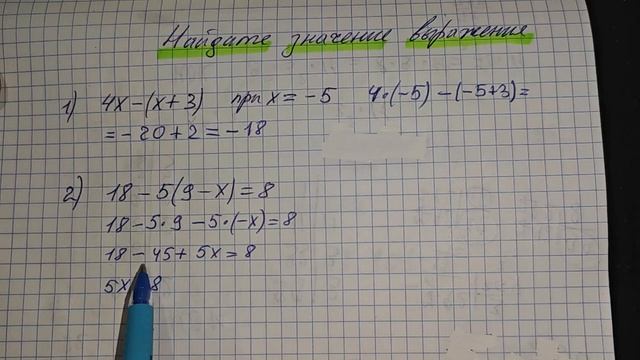 Найдите значение выражение
1) 4x - (x + 3) при x = -5 4·(-5) - (-5+3) =
= -20 + 2 = -18
2) 18 - 5(9 - x) = 8
18 - 5·9 - 5·(-x) = 8
18 - 45 + 5x = 8
5x 8